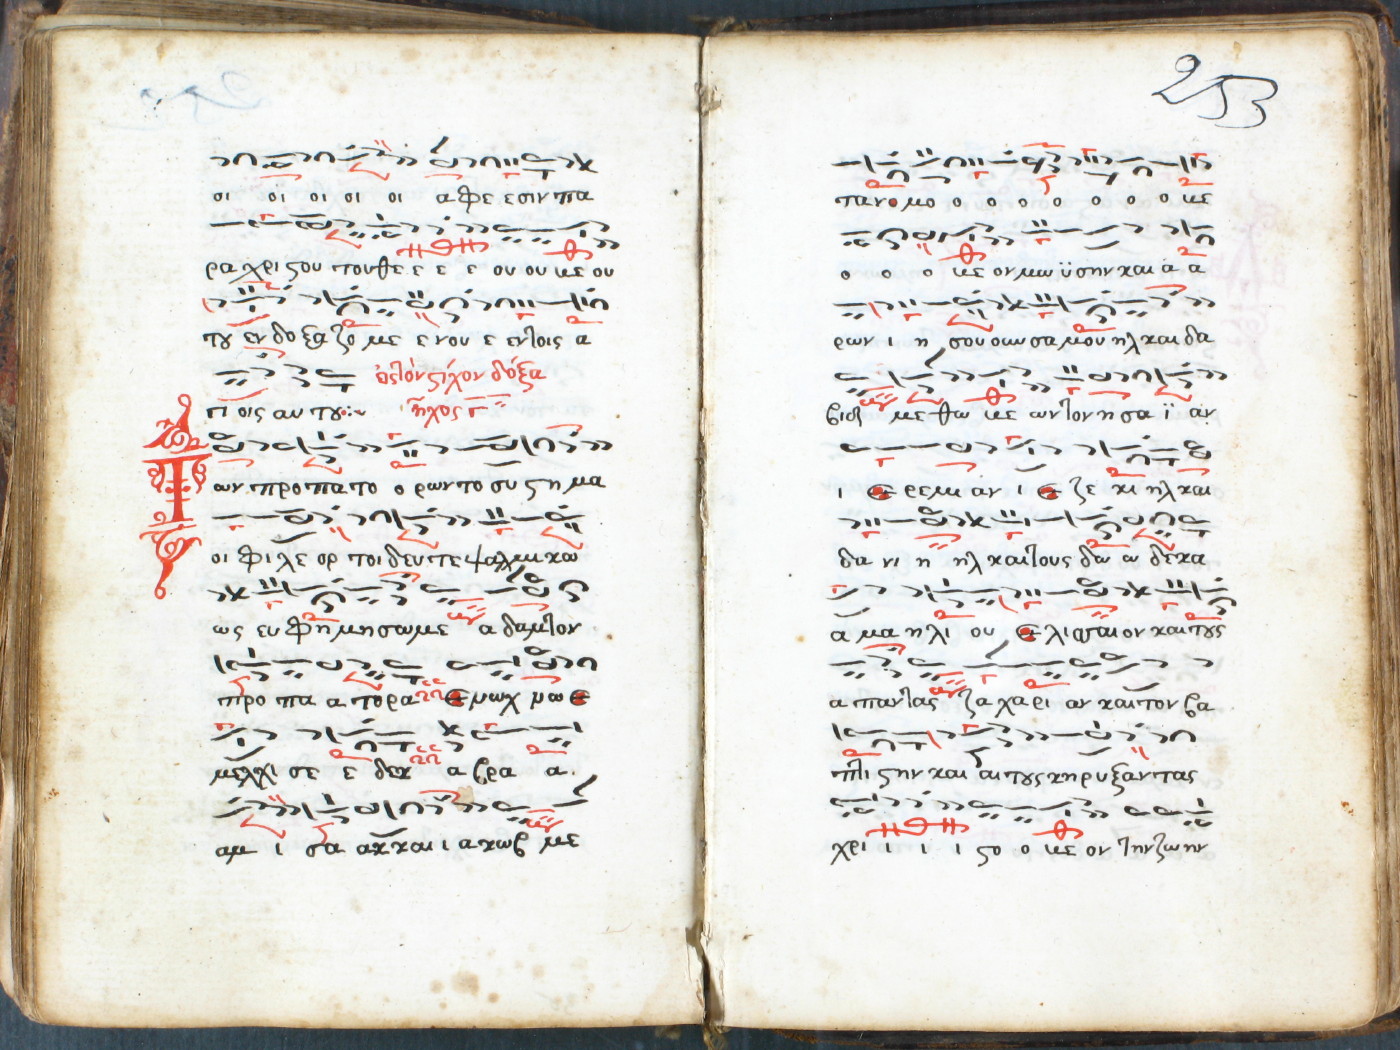 οι οι οι οι οι α φε ε σιν πα
ρα χρι στου του θε ε ε ε ου ου με ου
του εν δο ξα ζο με ε νου ε εν τοις α
εις τον στίχον δόξα
τι οις αυ του
ἦχος Γ
Τ
ων προ πα το ο ρων το συ στη μα
οι φι λε ορ τοι δευ τε ψαλ μι κω
ως ευ φη μη σω με α δαμ τον
προ πα α το ρα ε νωχ νω ε
μελχι σε ε δεκ α βρα α
αμ ι σα ακ και ι α κωβ με
253
τα νο μο ο ο ο ο ο ο ο με
ο ο ο με ον μω ϋ σην και α α
ρων ι η σου ουν σα μου ηλ και δα
βιδ με θω με ων τον η σα ϊ αν
ι ε ρε μι αν ι ε ζε κι ηλ και
δα νι η ηλ και τους δω ω δε κα
α μα η λι ου ε λισ σαι ον και τους
α παντας ζα χα ρι αν και τον βα
πτι στην και αυ τους κη ρυ ξαν τας
χρι ι ι ι στο ο με ον την ζω ην